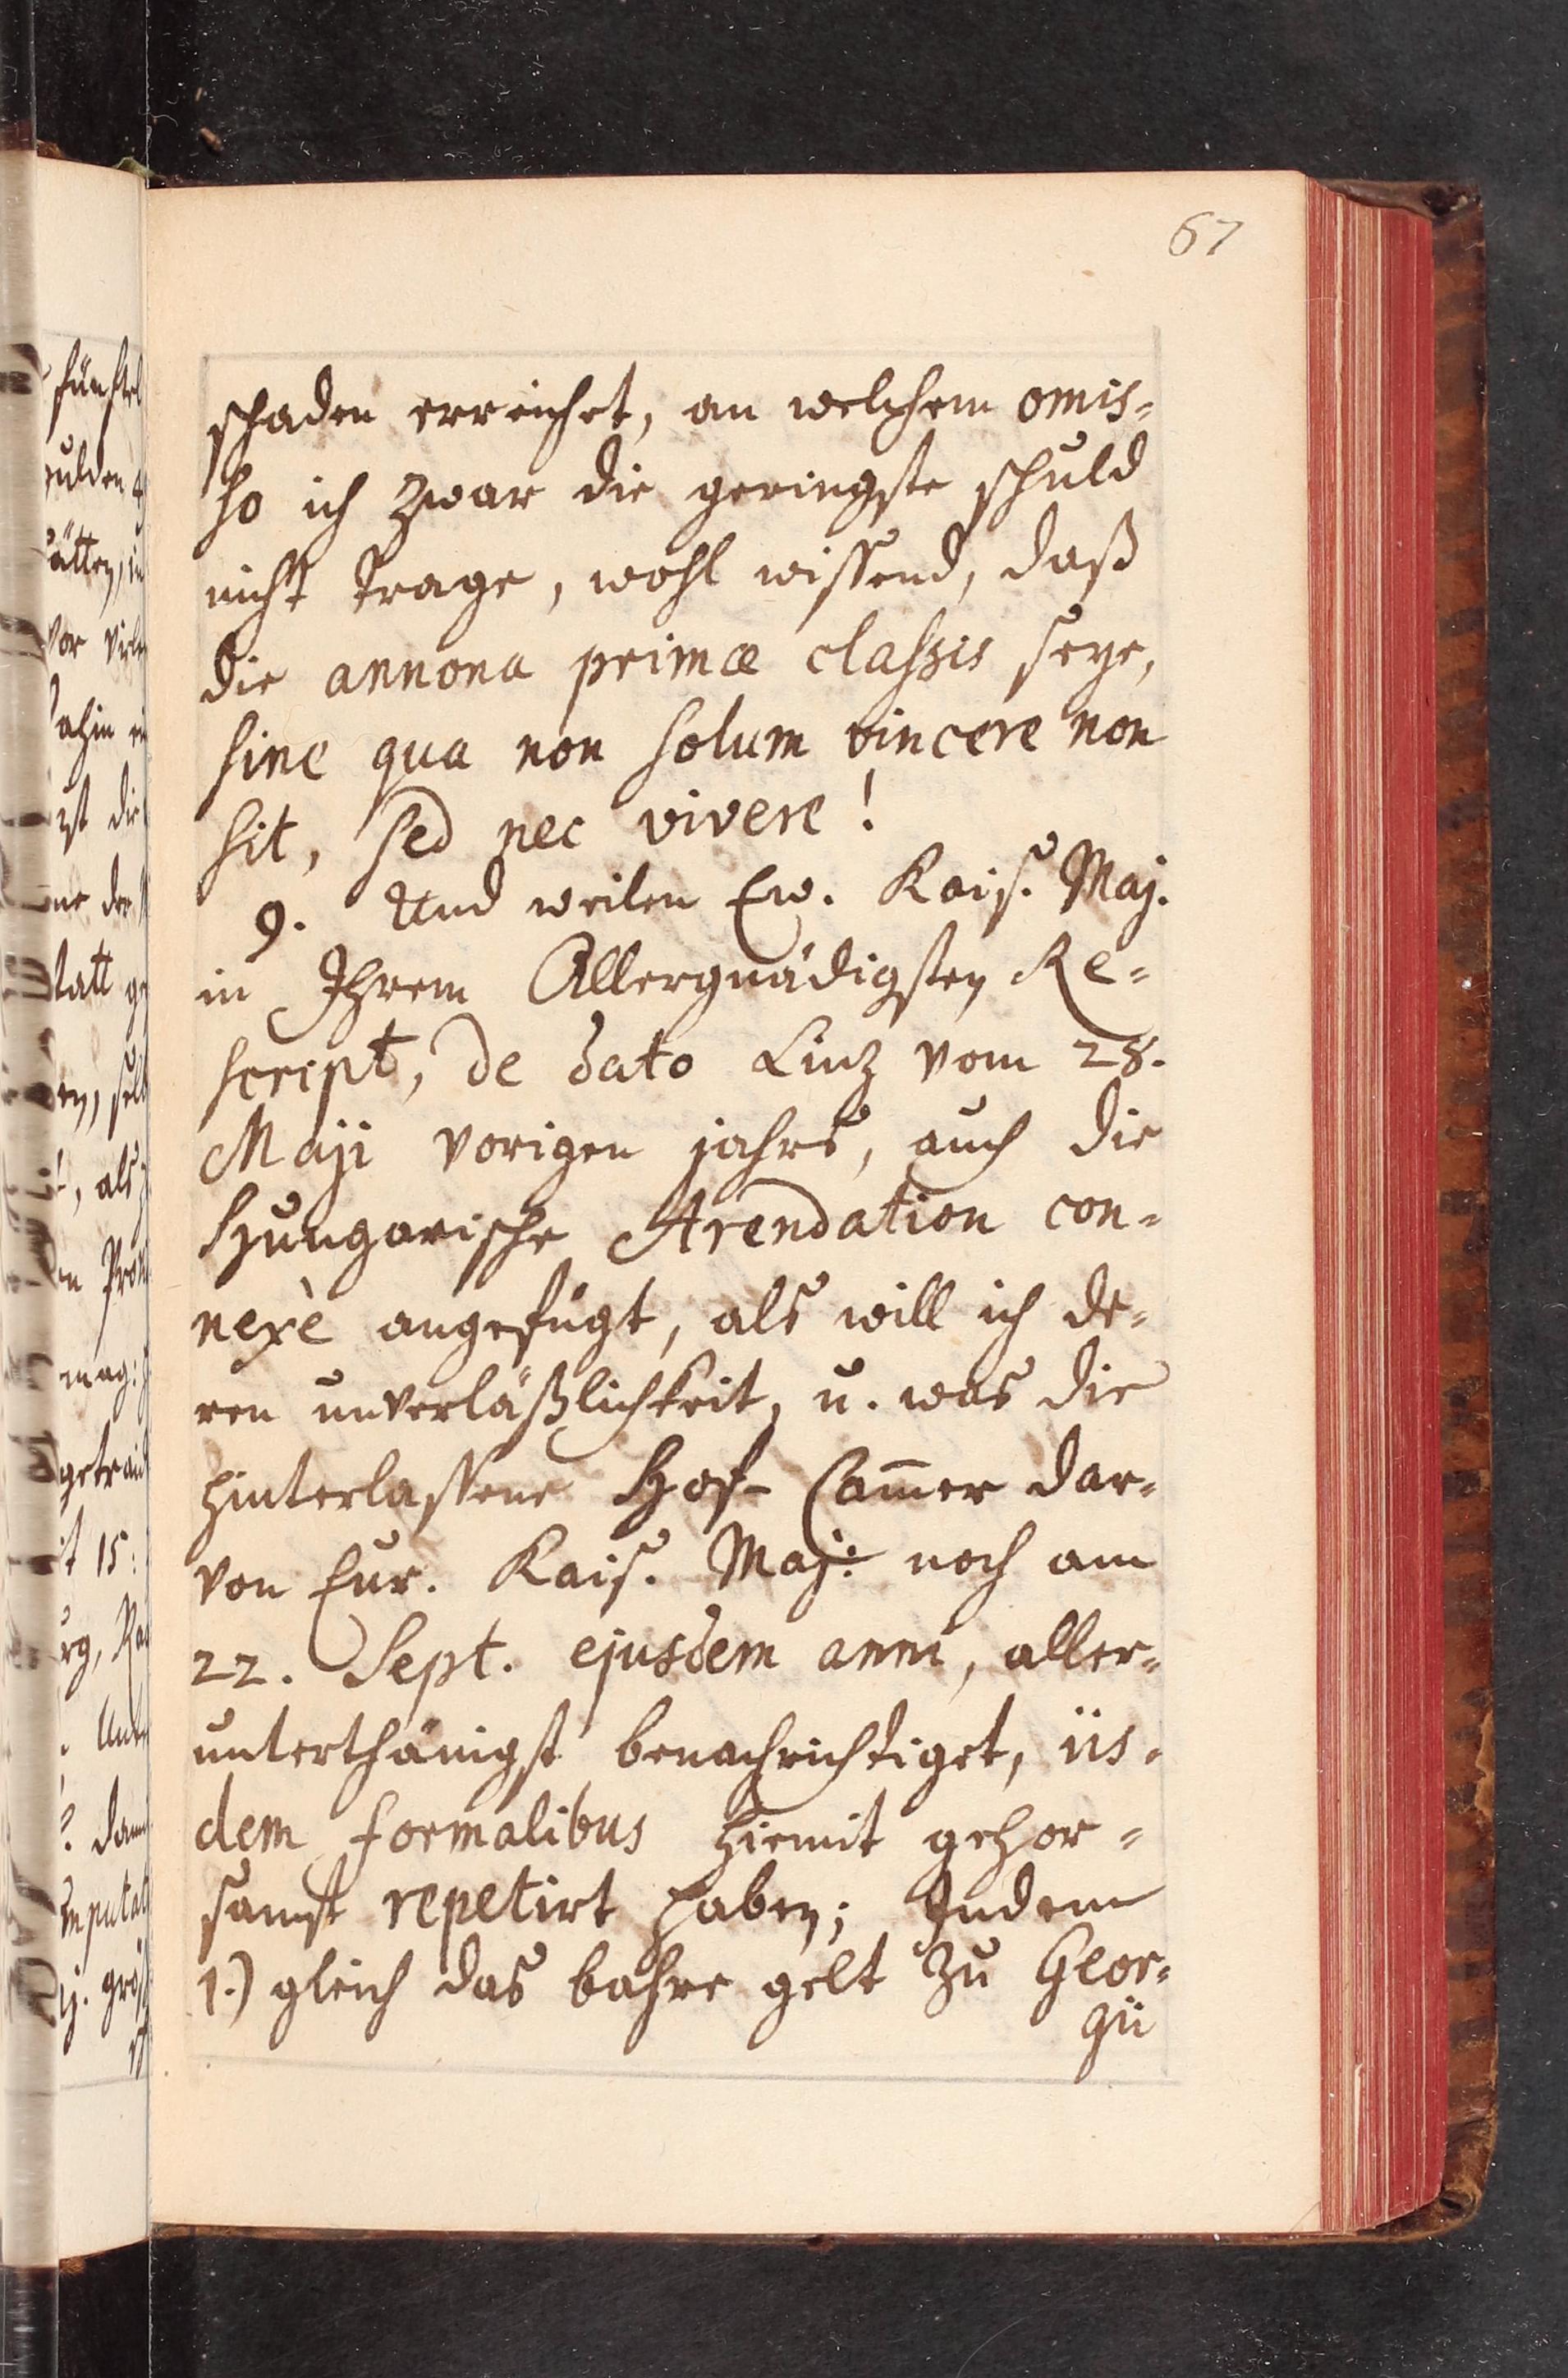 67
schaden erreichet, an welchem omis=
so ich zwar die geringste schuld
nicht trage, wohl wissend, daß
die annona primæ classis seye,
sine qua non solum vincere non
sit, sed nec vivere!
9. Und weilen Ew. Kais. Maj.
in Ihrem Allergnädigsten Re=
script, de dato Linz vom 28.
Maji vorigen jahrs, auch die
Hungarische Arendation con=
nexè angefügt, als will ich de=
ren unverläßlichkeit, u. was die
hinterlassene Hof-Cam̄er dar=
von Eur. Kais. Maj: noch am
22. Sept. ejusdem anni, aller=
unterthänigst benachrichtiget, iis=
dem formalibus hiemit gehor=
samst repetirt haben; Indem
1.) gleich das bahre gelt zu Geor=
gii